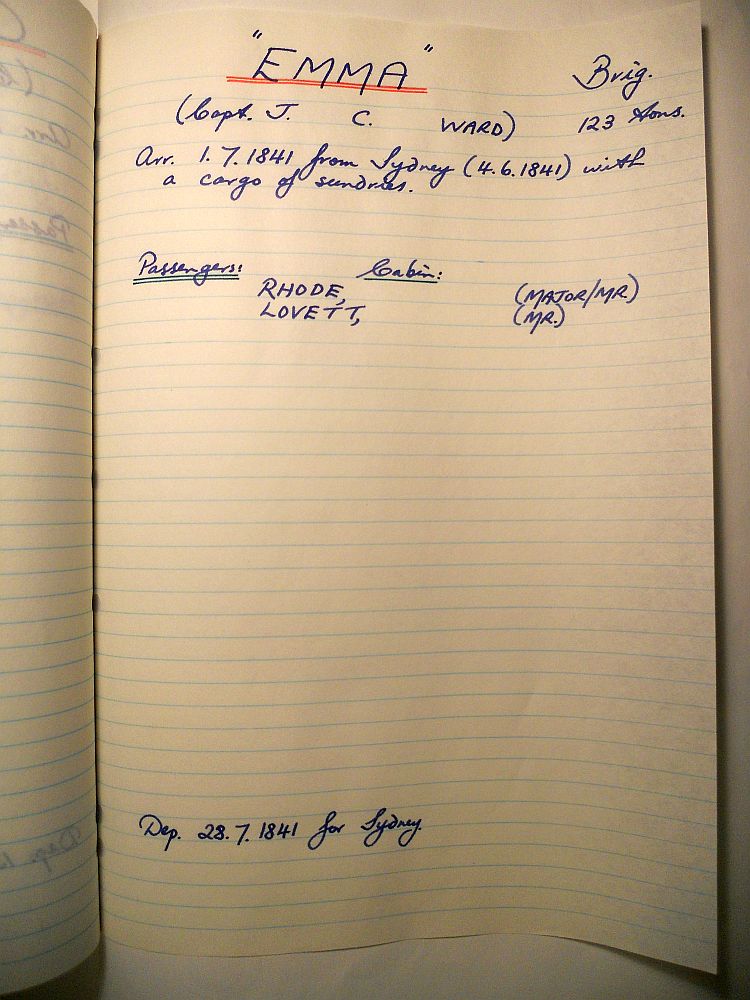 "EMMA" Brig.
(Capt. J. C. WARD) 123 tons.
Arr. 1.7.1841 from Sydney (4.6.1841) with
a cargo of sundries.
Passengers: Cabin:
RHODE, (MAJOR/MR)
LOVETT, (MR.)
Dep. 28.7.1841 for Sydney.